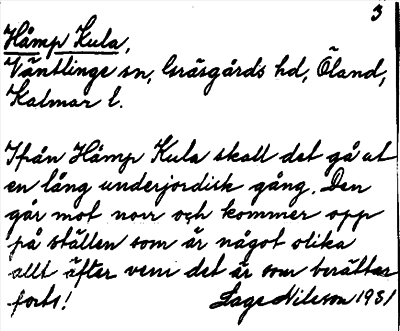 3
Hämp Kula,
Väntlinge sn, Gräsgårds hd, Öland,
Kalmar l.
Ifrån Hämp Kula skall det gå ut
en lång underjordisk gång. Den
går mot norr och kommer opp
på ställen som är något olika
allt äfter vem det är som berättar
forts! Lage Nilsson 1931